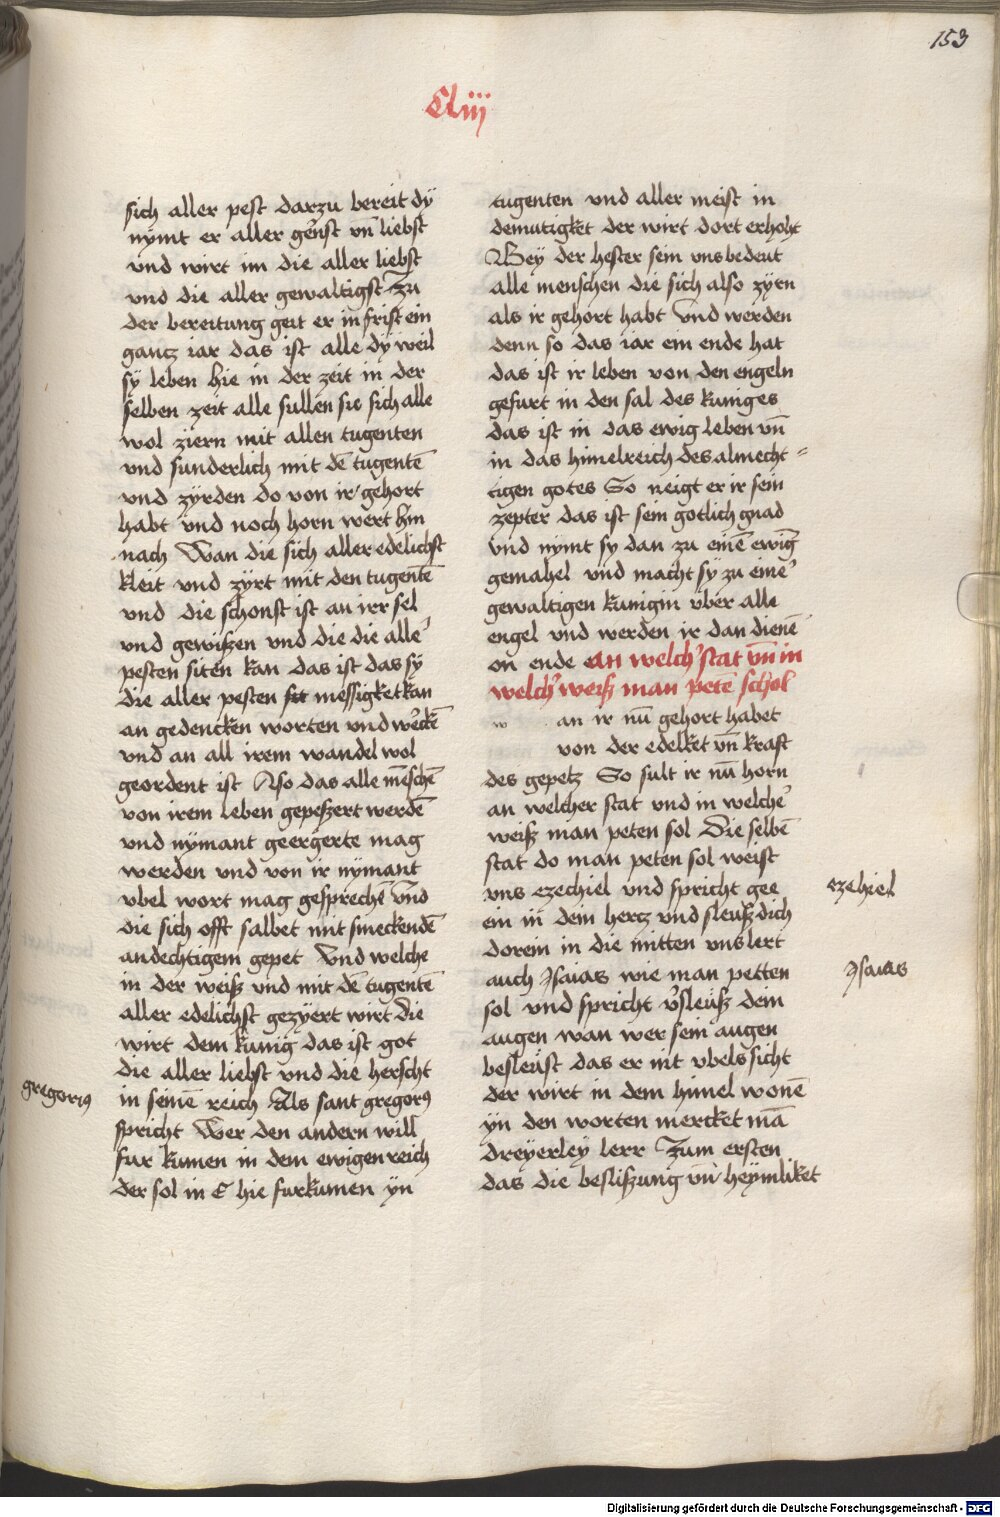 153
Cliij
sich aller pest darzu bereit dÿ
nÿmt er aller gẽnst vn̄ liebst
vnd wirt im die aller liebst
vnd die aller gewaltigst Zu
der bereitung geit er in frist ein
gantz iar das ist alle dÿ weil
sÿ leben hie in der zeit in der
selben zeit alle sullen sie sich alle
wol ziern mit allen tugenten
vnd sunderlich mit dē tugentē
vnd zÿrden do von ir gehort
habt vnd noch horn wert hin
nach Wan die sich aller edelichst
kleit vnd zÿrt mit den tugentē
vnd die schonst ist an irr sel
vnd gewissen vnd die die alle᾿
pesten siten kan das ist das sÿ
die aller pesten messigket kan
an gedencken worten vnd w᾿ckē
vnd an all irem wandel wol
geordent ist Also das alle mēschē
von irem leben gepeszert werdē
vnd nÿmant geergerte mag
werden vnd von ir nÿmant
vbel wort mag gesprechē Vnd
die sich offt salbet mit smeckendē
andechtigem gepet Vnd welche
in der weiß vnd mit dē tugentē
aller edelichst gezÿert wirt die
wirt dem kunig das ist got
die aller liebst vnd die herscht
gregoriꝰ
in seinē reich Als sant gregoriꝰ
spricht Wer den andern will
fur kumen in dem ewigen reich
der sol in E hie furkumen ÿn
tugenten vnd aller meist in
demutigket der wirt dort erhoht
Bey der hester sein vns bedeut
alle menschen die sich also zÿrn
als ir gehort habt Vnd werden
denn so das iar ein ende hat
das ist ir leben von den engeln
gefurt in den sal des kuniges
das ist in das ewig leben vn̄
in das himelreich des almecht⸗
tigen gotes So neigt er ir sein
zepter das ist sein gotlich gnad
vnd nÿmt sy dan zu einē ewiḡ
gemahel vnd macht sÿ zu eine᾿
gewaltigen kunigin vber alle
engel vnd werden ir dan dienē
on ende an welch᾿ stat vn̄ in
welch᾿ weiß man petē schol
w an ir nū gehort habet
von der edelket vn̄ kraft
des gepetz So sult ir nū horn
an welcher stat vnd in welche᾿
weiß man peten sol Die selbē
stat do man peten sol weist
vns ezechiel vnd spricht gee
ezehiel
ein in dem hertz vnd sleuß dich
dorein in die mitten vns lert
auch Jsaias wie man petten
Jsaias
sol vnd spricht v᾿sleuß dein
augen wan wer sein augen
besleust das er nit vbels sicht
der wirt in dem himel wonē
ÿn den worten mercket mā
dreÿerley lerr Zum ersten
das die beslißung vn̄ heÿmliket